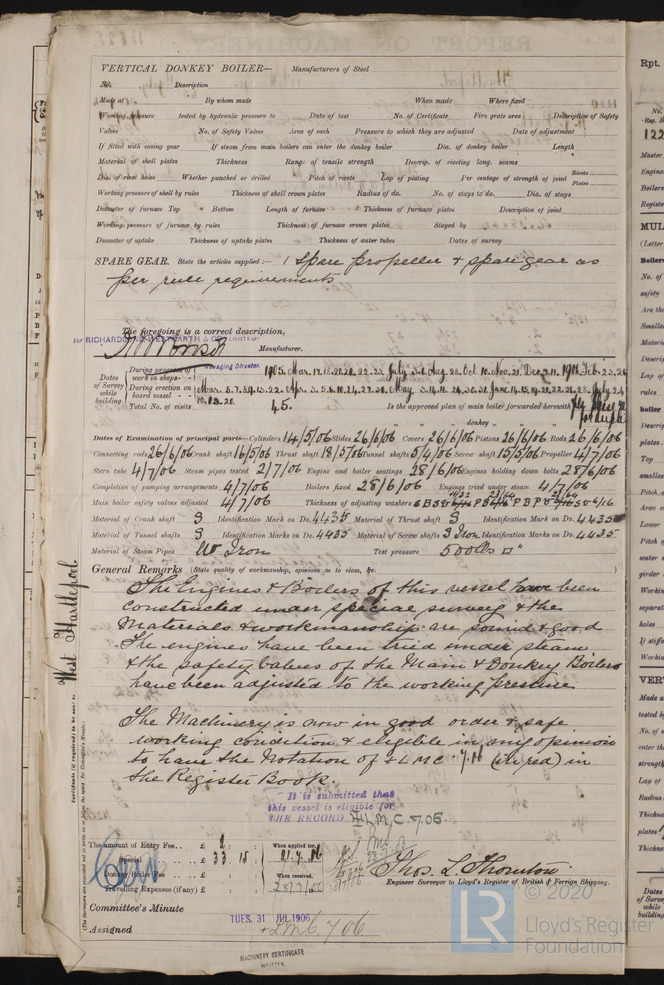 VERTICAL DONKEY BOILER— Manufacturers of Steel
No. Description
Made at By whom made When made Where fixed
Working pressure tested by hydraulic pressure to Date of test No. of Certificate Fire grate area Description of Safety
Valves No. of Safety Valves Area of each Pressure to which they are adjusted Date of adjustment
If fitted with easing gear If steam from main boilers can enter the donkey boiler Dia. of donkey boiler Length
Material of shell plates Thickness Range of tensile strength Descrip. of riveting long. seams
Dia. of rivet holes Whether punched or drilled Pitch of rivets Lap of plating Per centage of strength of joint Rivets Plates
Working pressure of shell by rules Thickness of shell crown plates Radius of do. No. of stays to do. Dia. of stays
Diameter of furnace Top Bottom Length of furnace Thickness of furnace plates Description of joint
Working pressure of furnace by rules Thickness of furnace crown plates Stayed by
Diameter of uptake Thickness of uptake plates Thickness of water tubes Dates of survey
SPARE GEAR. State the articles supplied:— 1 Spare propeller & spare gear as
per rule requirements
The foregoing is a correct description,
for RICHARDSONS WESTGARTH & CO LIMITED
Managing Director. Manufacturer.
Dates of Survey while building
During progress of work in shops - - 1905 Mar. 17. 18. 20. 22. 23 July 3. 6 Aug. 28. Oct 10. Nov. 21. Dec 7. 11. 1906 Feb. 23. 26
During erection on board vessel - - - Mar. 5. 7. 8. 9. 13. 22. Apr. 3. 5. 6. 10. 24. 27. 30. May 3. 14. 16. 24. 30. 31. June 14. 15. 19. 21. 22. 26. 28. July 2. 4
10. 13. 20.
Total No. of visits 45. Is the approved plan of main boiler forwarded herewith
" " " donkey " " "
Dates of Examination of principal parts—Cylinders 14/5/06 Slides 26/6/06 Covers 26/6/06 Pistons 26/6/06 Rods 26/6/06
Connecting rods 26/6/06 Crank shaft 16/5/06 Thrust shaft 18/5/06 Tunnel shafts 5/4/06 Screw shaft 15/5/06 Propeller 4/7/06
Stern tube 4/7/06 Steam pipes tested 2/7/06 Engine and boiler seatings 28/6/06 Engines holding down bolts 28/6/06
Completion of pumping arrangements 4/7/06 Boilers fixed 28/6/06 Engines tried under steam 4/7/06
Main boiler safety valves adjusted 4/7/06 Thickness of adjusting washers
Material of Crank shaft S Identification Mark on Do. 4435 Material of Thrust shaft S Identification Mark on Do. 4435
Material of Tunnel shafts S Identification Marks on Do. 4435 Material of Screw shafts S Iron Identification Marks on Do. 4435
Material of Steam Pipes W Iron Test pressure 500 lbs □"
General Remarks (State quality of workmanship, opinions as to class, &c.
The Engines & Boilers of this vessel have been
constructed under special survey & the
Materials & workmanship are sound & good
The engines have been tried under steam
& the safety valves of the Main & Donkey Boilers
have been adjusted to the working pressure
The Machinery is now in good order & safe
working condition & eligible in my opinion
to have the Notation of + LMC 7.06 (in red) in
the Register Book.
It is submitted that
this vessel is eligible for
THE RECORD + L M C. 7.06
The amount of Entry Fee . . £ 2 : When applied for,
Special . . . £ 33. 15 : 21.7.06
Donkey Boiler Fee . . . £ When received,
Travelling Expenses (if any) £
Thos. L. Thornton
Engineer Surveyor to Lloyd's Register of British & Foreign Shipping.
Committee's Minute TUES. 31 JUL 1906
Assigned + LMC 7.06
MACHINERY CERTIFICATE
WRITTEN.
West Hartlepool
Certificate (if required) to be sent to
(The Surveyors are requested not to write on or below the space for Committee's Minute.)
© 2020
Lloyd's Register
Foundation
LR
Rpt.